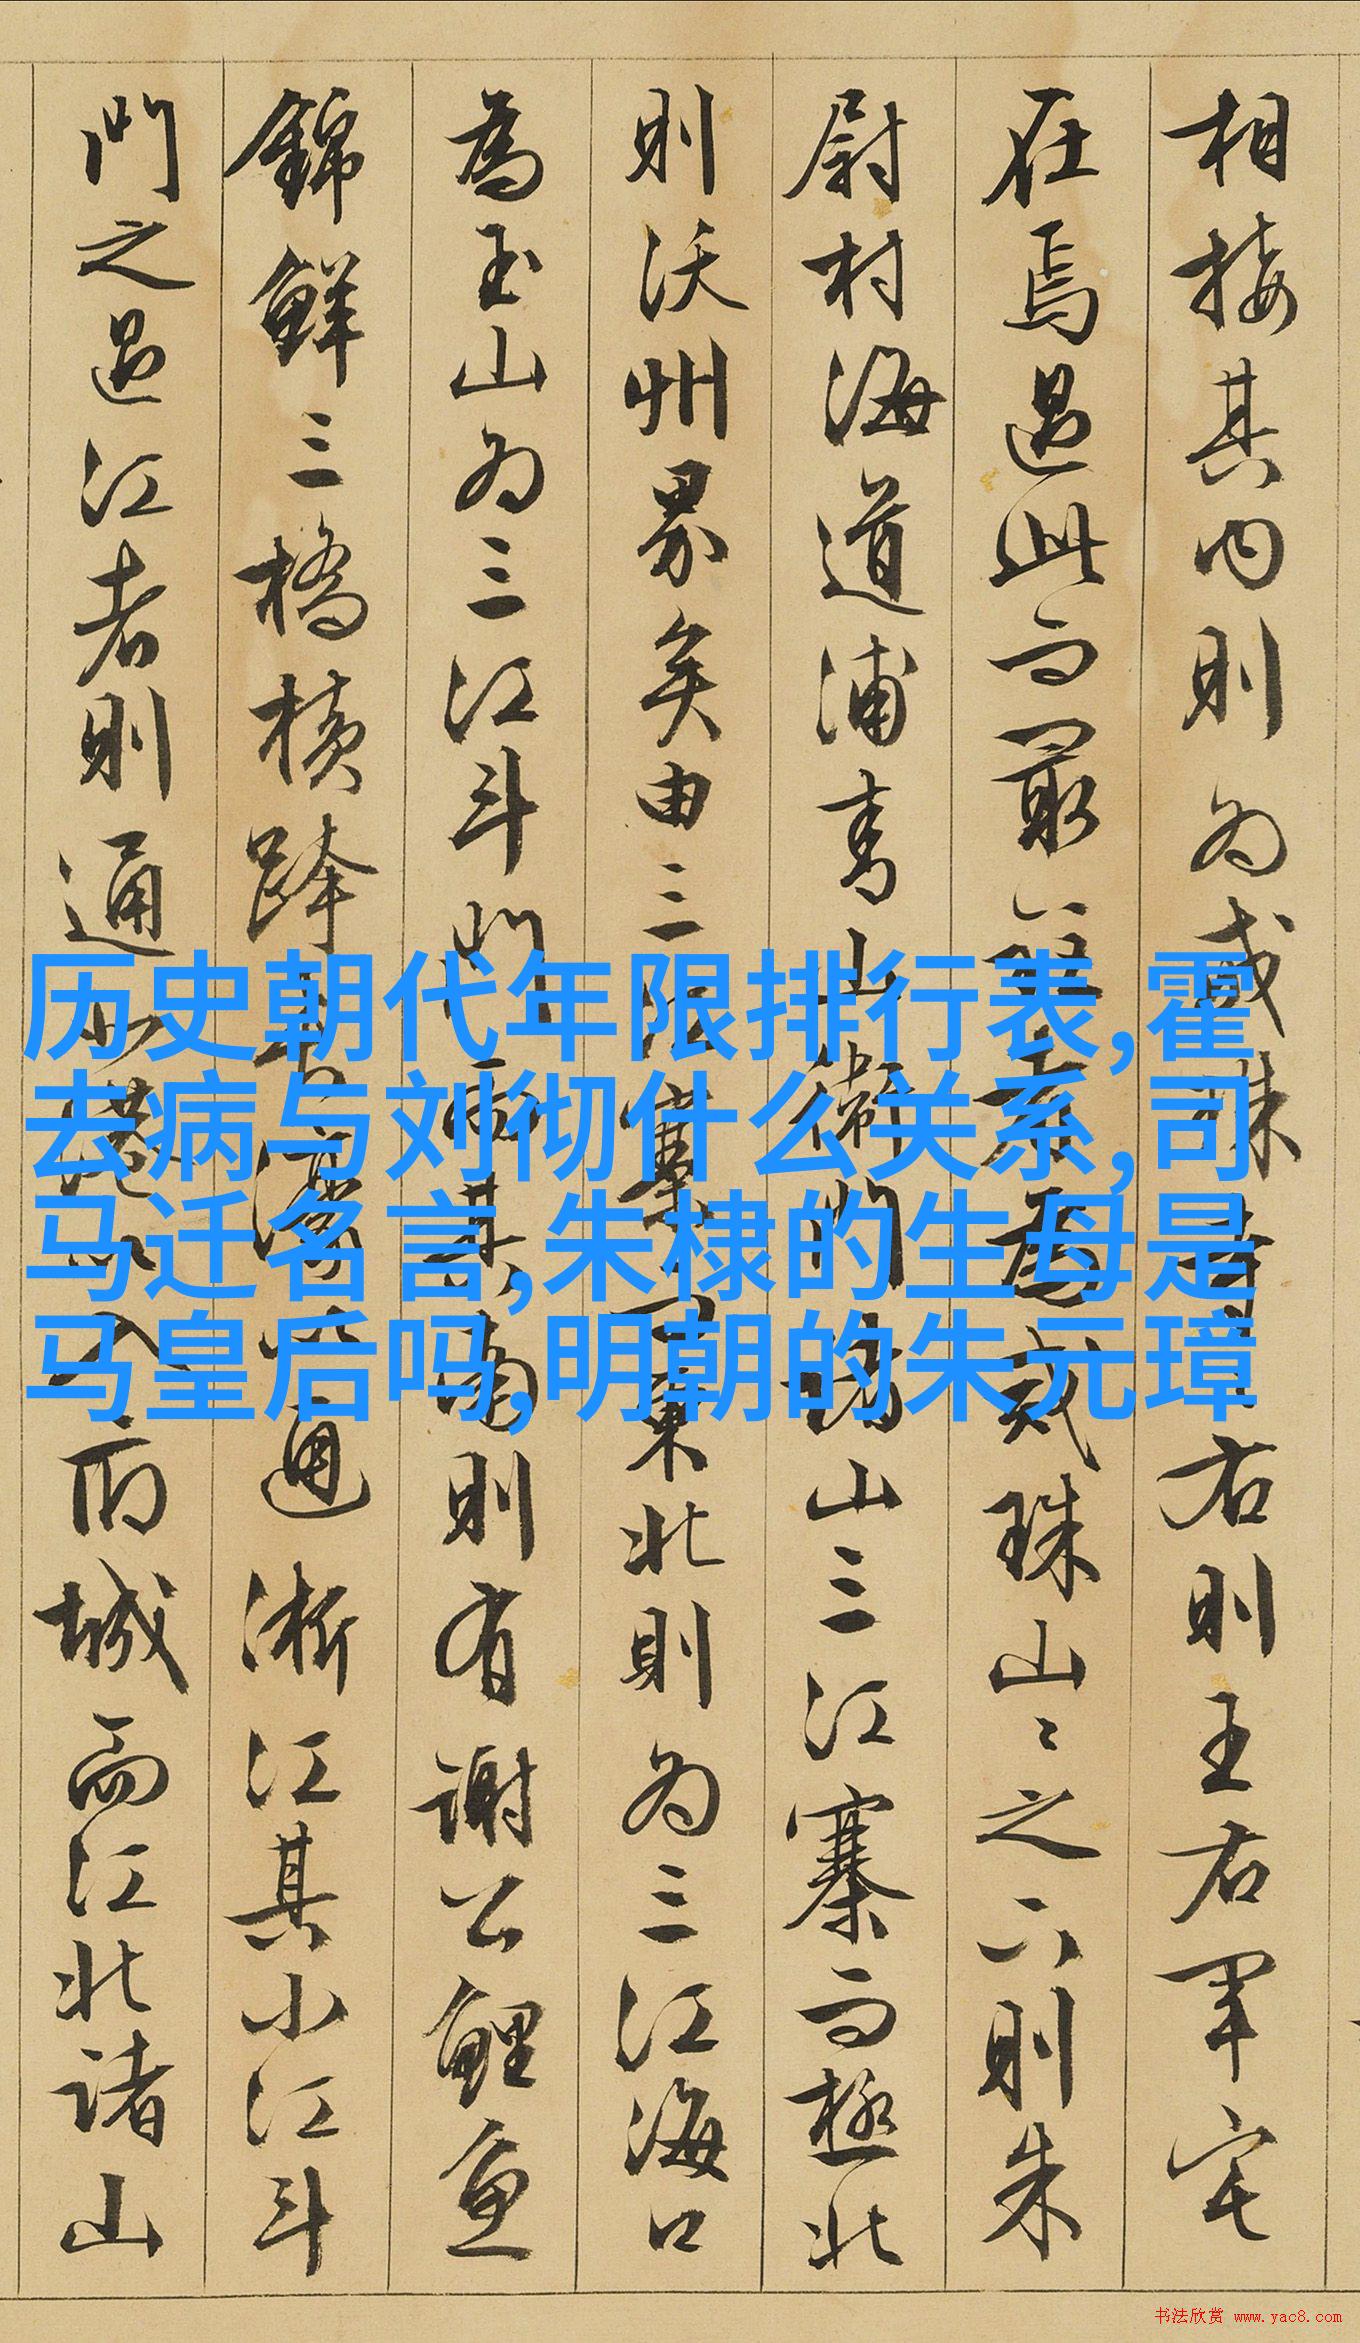 相接其内則為戒珠寺寺右則王右軍宅
在焉過此而最為戒珠山山之下則朱
尉村海道浦青山衛門諸山三江寨而極北
則沃州界矣由三江寨東北則為三江海口
為玉山為三江斗門而其南則有謝公鯉魚
錦鮮三橋横跨以通浙江其小江斗
門之過江者則通入府城而江北諸山
历史朝代年限排行表,霍
去病与刘彻什么关系,司
马迁名言,朱棣的生母是
马皇后吗,明朝的朱元璋
书法欣赏 www.yac8.com